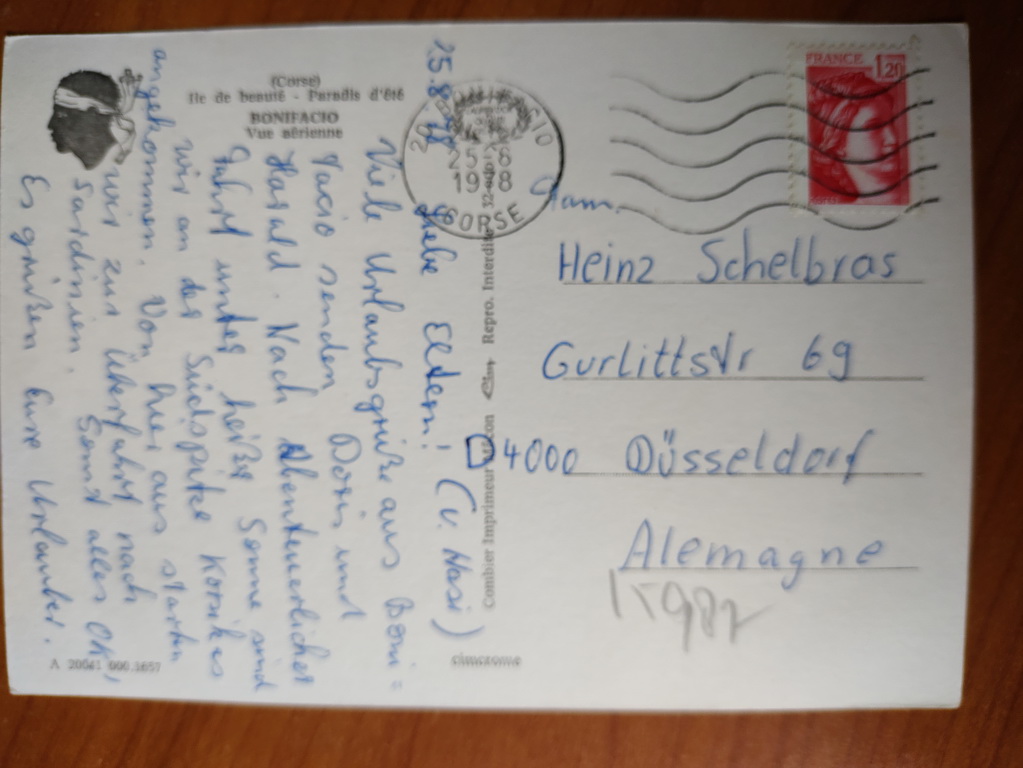 (Corse)
Ile de beauté - Paradis d'été
BONIFACIO
Vue aérienne
25.8.78
Liebe Eltern! (u. Hasi)
Viele Urlaubsgrüße aus Boni-
facio senden Doris und
Harald. Nach Abenteuerlicher
Fahrt unter heißer Sonne sind
wir an der Südspitze Korsikas
angekommen. Von hier aus starten
wir zur Überfahrt nach
Sardinien. Sonst alles OK,
Es grüßen Eure Urlauber.
A 20041 000.1657
Combier Imprimeur Mâcon
Repro. Interdite
cimcrome
20
CIO
25-8
1978
CORSE
FRANCE 1,20
Fam.
Heinz Schelbras
Gurlittstr 69
D 4000 Düsseldorf
Alemagne